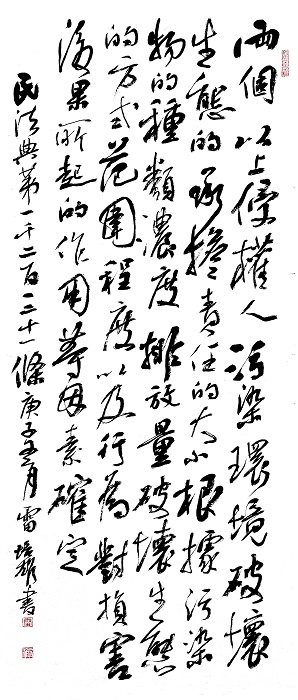 兩個以上侵權人污染環境破壞
生態的承擔責任的大小根據污染
物的種類濃度排放量破壞生態
的方式范圍程度以及行為對損害
後果所起的作用等因素確定
民法典第一千二百三十一條庚子五月雷培耀書